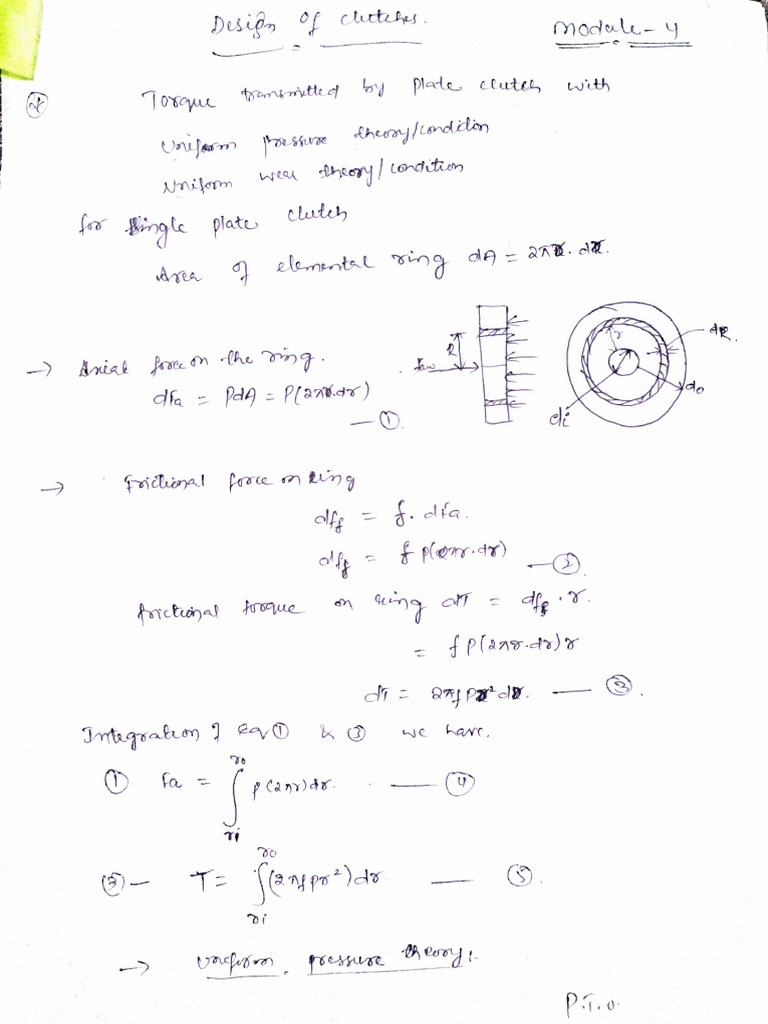 Design of clutches.
Module-4
Torque transmitted by plate clutch with
Uniform pressure theory/condition
Uniform wear theory/condition
for single plate clutch
Area of elemental ring dA = 2πr.dr.
→ Axial force on the ring.
dFa = PdA = P(2πr.dr)
— ①.
R
r
dR.
do
di
→ Frictional force on ring
dff = f. dFa.
dff = f P(2πr.dr) — ②
frictional torque on ring dT = dff . r.
= f P(2πr.dr) r
dT = 2πfPr² dr. — ③.
Integration of Eq ① & ③ we have.
① Fa = ∫ P(2πr)dr. — ④
ro
ri
③ — T = ∫(2πfPr²)dr — ⑤.
ro
ri
→ Uniform pressure theory:-
P.T.O.